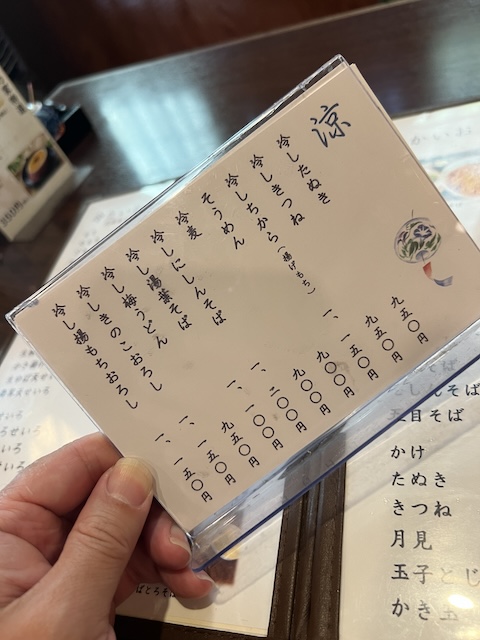 涼
冷したぬき 九五〇円
冷しきつね 九五〇円
冷しちから（揚げもち） 一、一五〇円
そうめん 九〇〇円
冷麦 九〇〇円
冷しにしんそば 一、二〇〇円
冷し湯葉そば 一、一〇〇円
冷し梅うどん 九五〇円
冷しきのこおろし 一、一五〇円
冷し揚もちおろし 一、一五〇円
にしんそば
五目そば
かけ
たぬき
きつね
月見
玉子とじ
かき玉